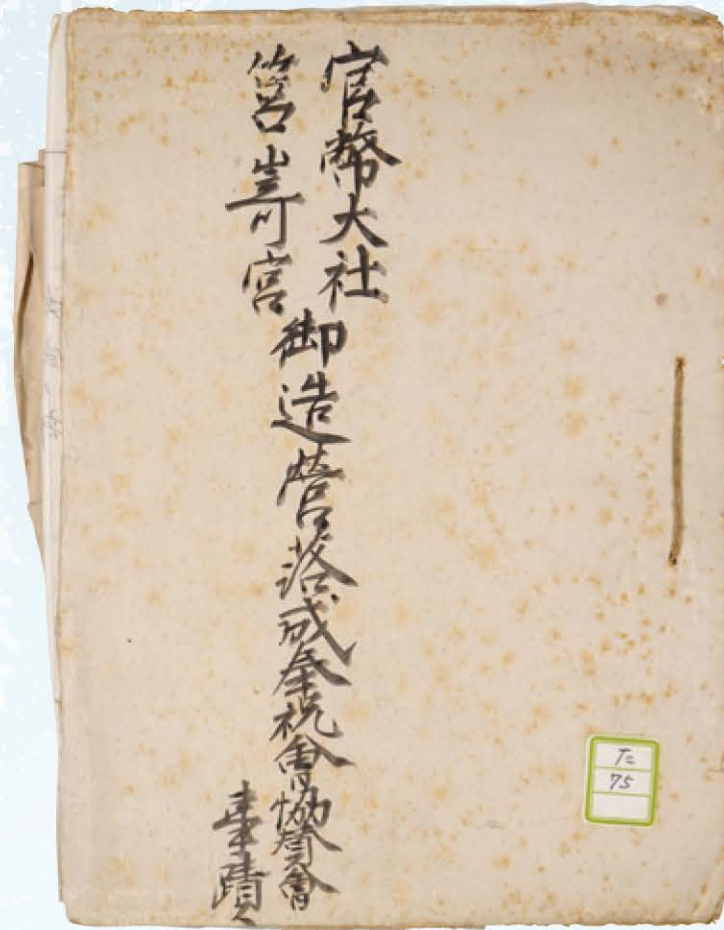 官幣大社
筥嵜宮
御造營落成奉祝會協賛會
事蹟
た
75